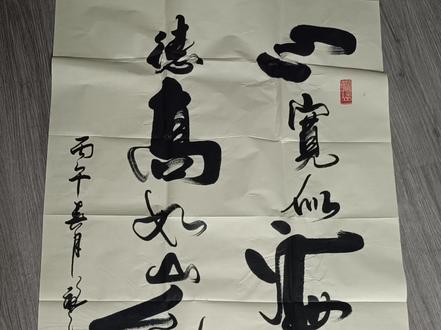 心寬似海
德高如山
丙午春月